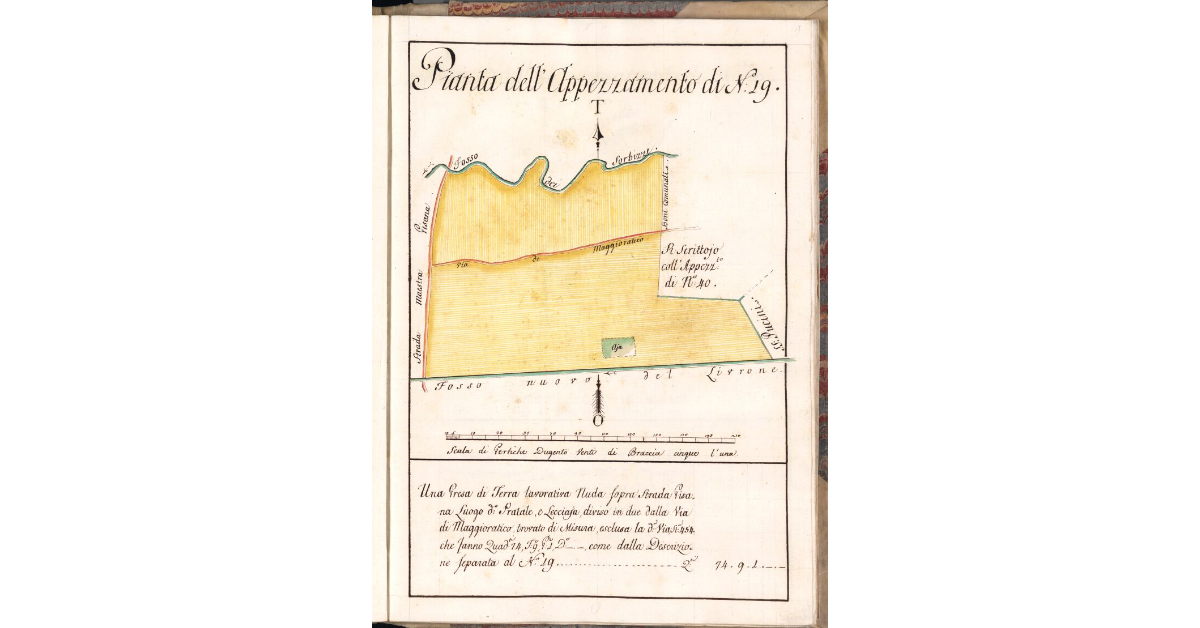 Pianta dell'Appezzamento di N.19.
T
Fosso dei Sorbizzi
Strada Maestra Pisana
Beni Comunali
Via di Maggioratico
Sc. Scrittojo
coll'Appezz.to
di N.° 40.
SS. Pucini
Aja
Fosso nuovo del Livrone
O
Scala di Pertiche Dugento Venti di Braccia cinque l'una
Una Presa di Terra lavorativa Nuda sopra Strada Pisa-
na Luogo d.° Pratale, e Lecciaja, diviso in due dalla Via
di Maggioratico, trovato di Misura, esclusa la d.a Via
che fanno Quad.i 74, come dalla Descrizio-
ne separata al N.° 19 74. 9. 1.